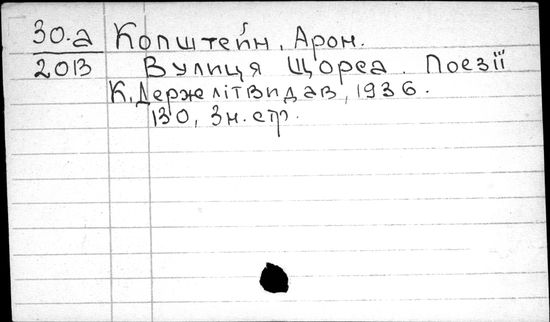 30.а Копштейн, Арон.
2013 Вулиця Щорса. Поезії
К. Держлітвидав, 1936.
130, 3н. стр.